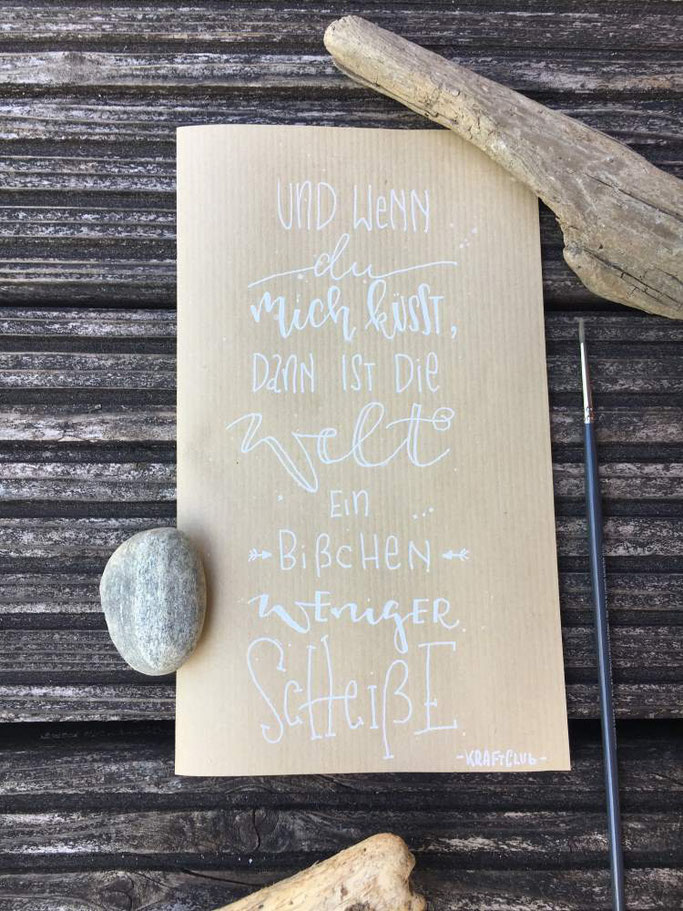 UND WENN
du
mich küsst,
DANN IST DIE
Welt
EIN
BIßCHEN
WENIGER
SCHEIßE
-KRAFTCLUB-